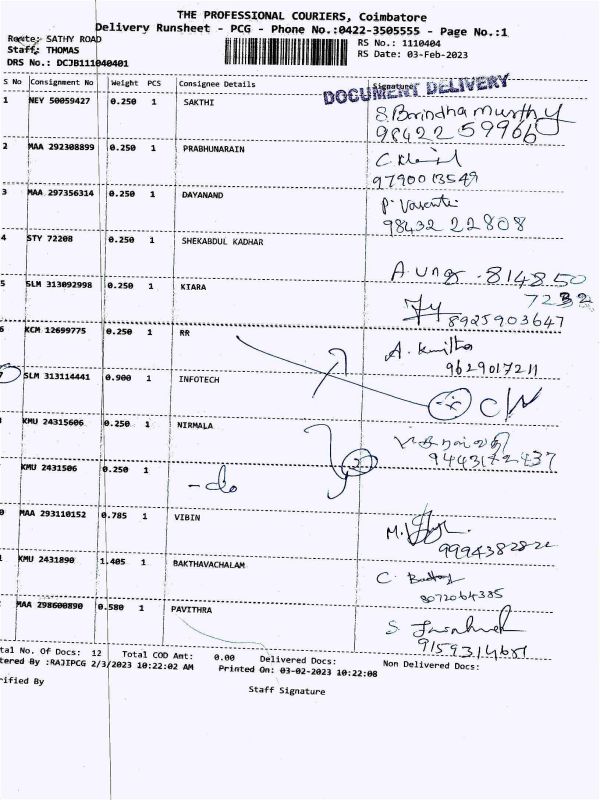 THE PROFESSIONAL COURIERS, Coimbatore
Delivery Runsheet - PCG - Phone No.:0422-3505555 - Page No.:1
Route: SATHY ROAD
RS No.: 1110404
Staff: THOMAS
RS Date: 03-Feb-2023
DRS No.: DCJB111040401
S No Consignment No Weight PCS Consignee Details Signature
DOCUMENT DELIVERY
1 NEY 50059427 0.250 1 SAKTHI
98422 59966
2 MAA 292308899 0.250 1 PRABHUNARAIN
9790013549
3 MAA 297356314 0.250 1 DAYANAND
98432 22808
4 STY 72208 0.250 1 SHEKABDUL KADHAR
81485 0
7232
5 SLM 313092998 0.250 1 KIARA
8925903647
6 KCM 12699775 0.250 1 RR
9629017211
7 SLM 313114441 0.900 1 INFOTECH
C/N
KMU 24315606 0.250 1 NIRMALA
KMU 2431506 0.250 1
2
-do
0 MAA 293110152 0.785 1 VIBIN
KMU 2431890 1.405 1 BAKTHAVACHALAM
8072064385
MAA 298600890 0.580 1 PAVITHRA
tal No. Of Docs: 12 Total COD Amt: 0.00 Delivered Docs: Non Delivered Docs:
tered By :RAJIPCG 2/3/2023 10:22:02 AM Printed On: 03-02-2023 10:22:08
rified By
Staff Signature